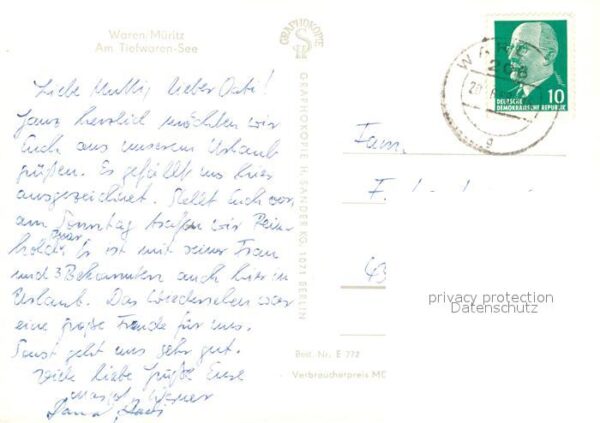 Waren/Müritz
Am Tiefwaren-See
Liebe Mutti, lieber Vati!
Ganz herzlich möchten wir
Euch aus unserem Urlaub
grüßen. Es gefällt uns hier
ausgezeichnet. Stellt Euch vor
am Sonntag trafen wir Rein-
hold. Er ist mit seiner Frau
und 3 Bekannten auch hier in
Urlaub. Das Wiedersehen war
eine große Freude für uns.
Sonst geht uns sehr gut.
Viele liebe Grüße Eure
Werner
GRAPHOKOPIE
GRAPHOKOPIE H. SANDER KG, 1071 BERLIN
Best. Nr. E 772
Verbraucherpreis MD
WARE
208
g
10
DEUTSCHE
DEMOKRATISCHE REPUBLIK
Fam.
43
privacy protection
Datenschutz